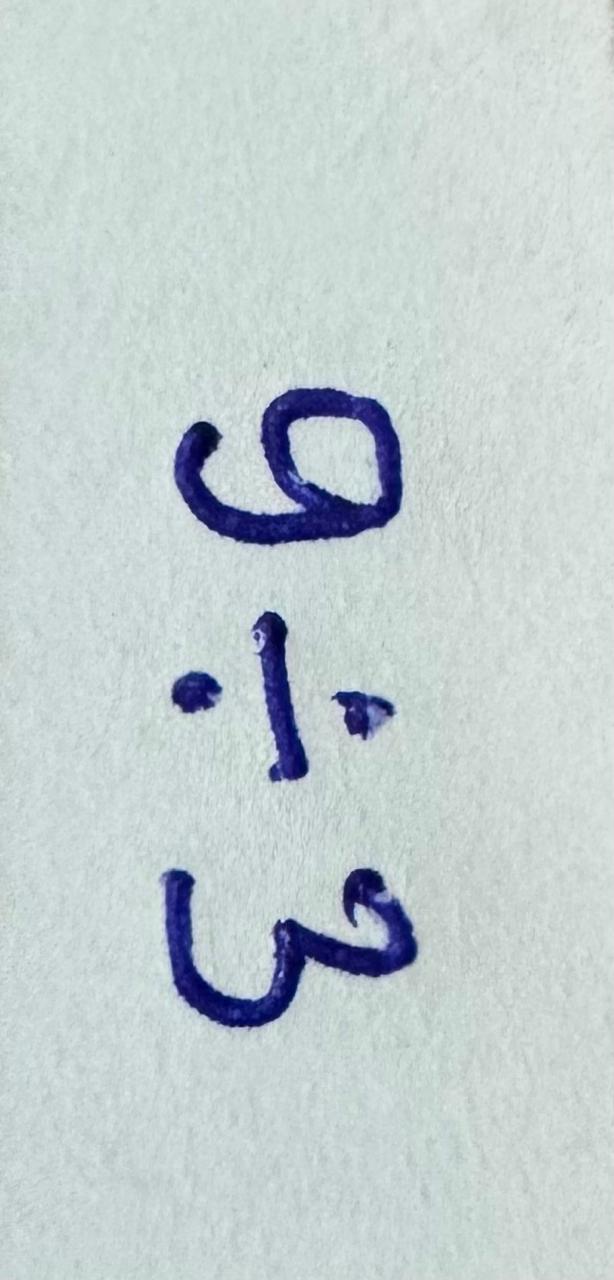 9 ÷ 3